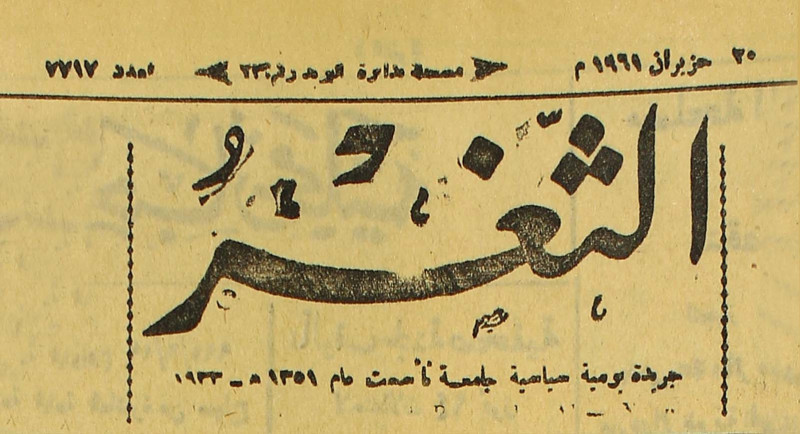 ٢٠ حزيران ١٩٦١ م مسجلة بدائرة البريد رقم ٢٣ العدد ٧٧١٧
الثَّغْرُ
جريدة يومية سياسية جامعة تأسست عام ١٣٥١ هـ - ١٩٣٣